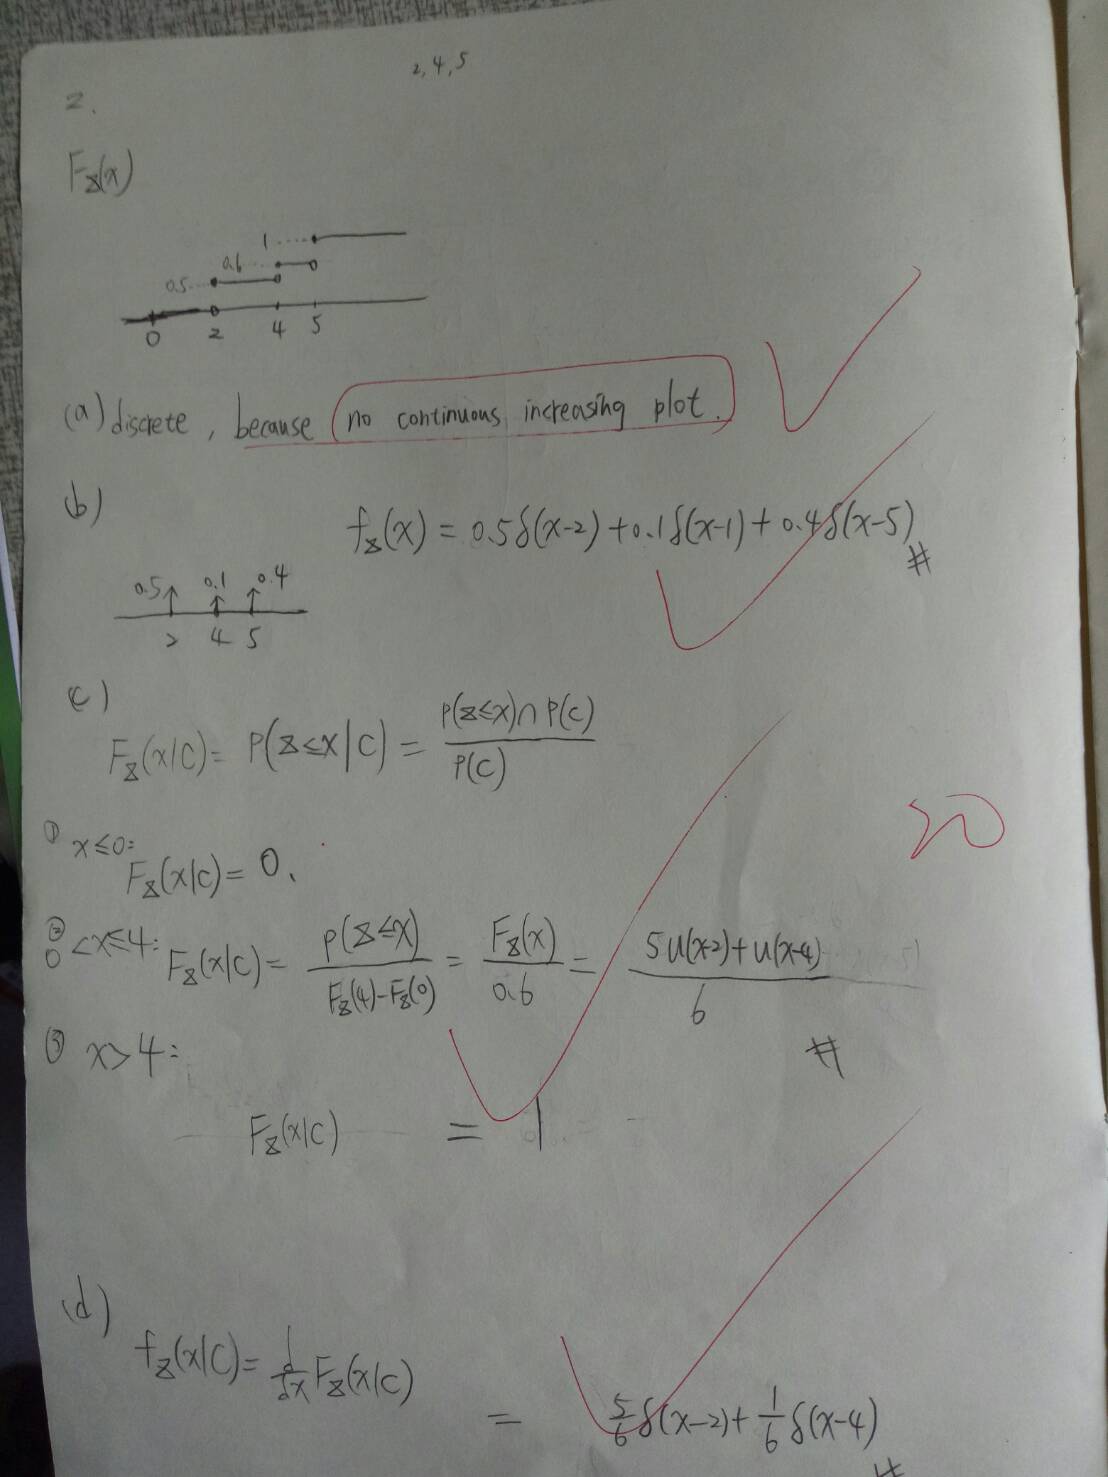 2, 4, 5
2.
F_X(x)
1
0.6
0.5
0 2 4 5
(a) discrete, because no continuous increasing plot.
(b)
f_X(x) = 0.5δ(x-2) + 0.1δ(x-1) + 0.4δ(x-5) #
0.5 0.1 0.4
2 4 5
(c)
F_X(x|C) = P(X≤x|C) = P(X≤x)∩P(C) / P(C)
① x≤0:
F_X(x|C) = 0.
② 0<x≤4: F_X(x|C) = P(X≤x) / F_X(4)-F_X(0) = F_X(x) / 0.6 = 5u(x-2)+u(x-4) / 6
#
③ x>4:
F_X(x|C) = 1
20
(d)
f_X(x|C) = d/dx F_X(x|C)
= 5/6 δ(x-2) + 1/6 δ(x-4)
#